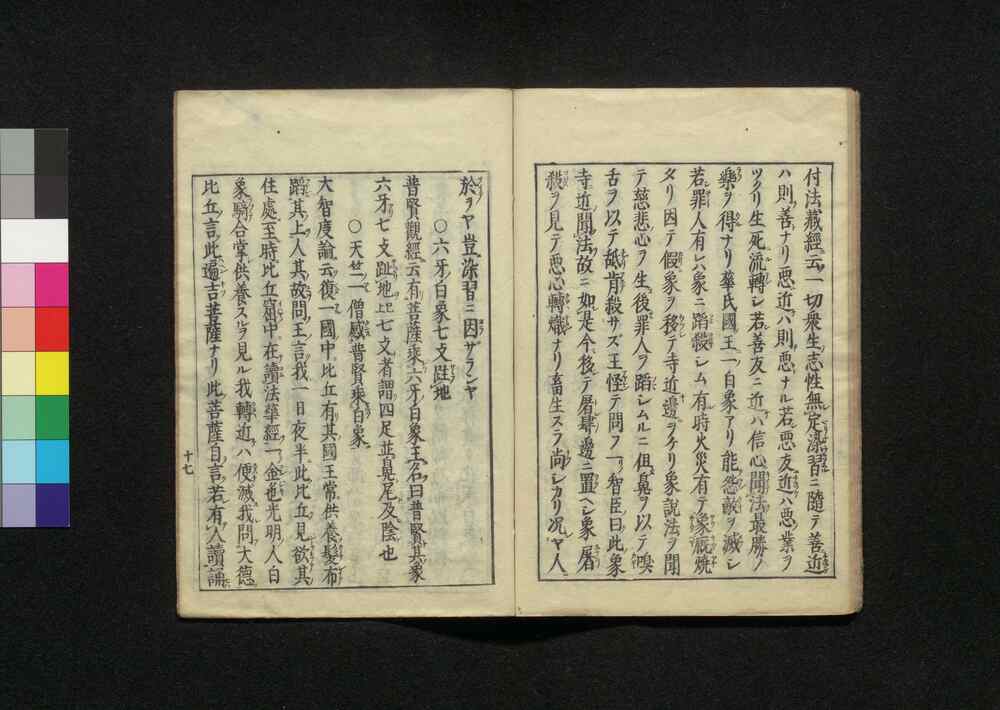 付法蔵經云一切衆生志性無定染習ニ隨テ善近
ハ則善ナリ悪近ハ則悪ナル若悪友近ハ悪業ヲ
ツクリ生死流轉シ若善友ニ近ハ信心聞法最勝ノ
樂ヲ得ナリ華氏國王一白象アリ能怨敵ヲ滅シ
若罪人有レハ象ニ蹈殺シム有時火災有テ象厩焼
タリ因テ假象ヲ移テ寺近邊ヲケリ象説法ヲ聞
テ慈悲心ヲ生後罪人ヲ蹈シムルニ但鼻ヲ以テ嗅
舌ヲ以テ舐肯殺サズ王怪テ問フ一智臣曰此象
寺近聞法故ニ如是今後テ屠肆邊ニ置ヘシ象屠
殺ヲ見テ悪心轉熾ナリ畜生スラ尚シカリ况ヤ人
於ヲヤ豈染習ニ因ザランヤ
○六牙白象七支跓地
普賢觀經云有菩薩乘六牙白象王名曰普賢其象
六牙七支跓地上七支者謂四足並鼻尾及陰也
○天竺一僧感普賢乘白象
大智度論云復一國中比丘有其國王常供養髪布
蹈其上人其故問王言我一日夜半此比丘見欲其
住處至時比丘窟中在讀法華經一金色光明人白
象騎合掌供養スルヲ見ル我轉近ハ便滅我問大德
比丘言此遍吉菩薩ナリ此菩薩自言若有人讀誦
十七